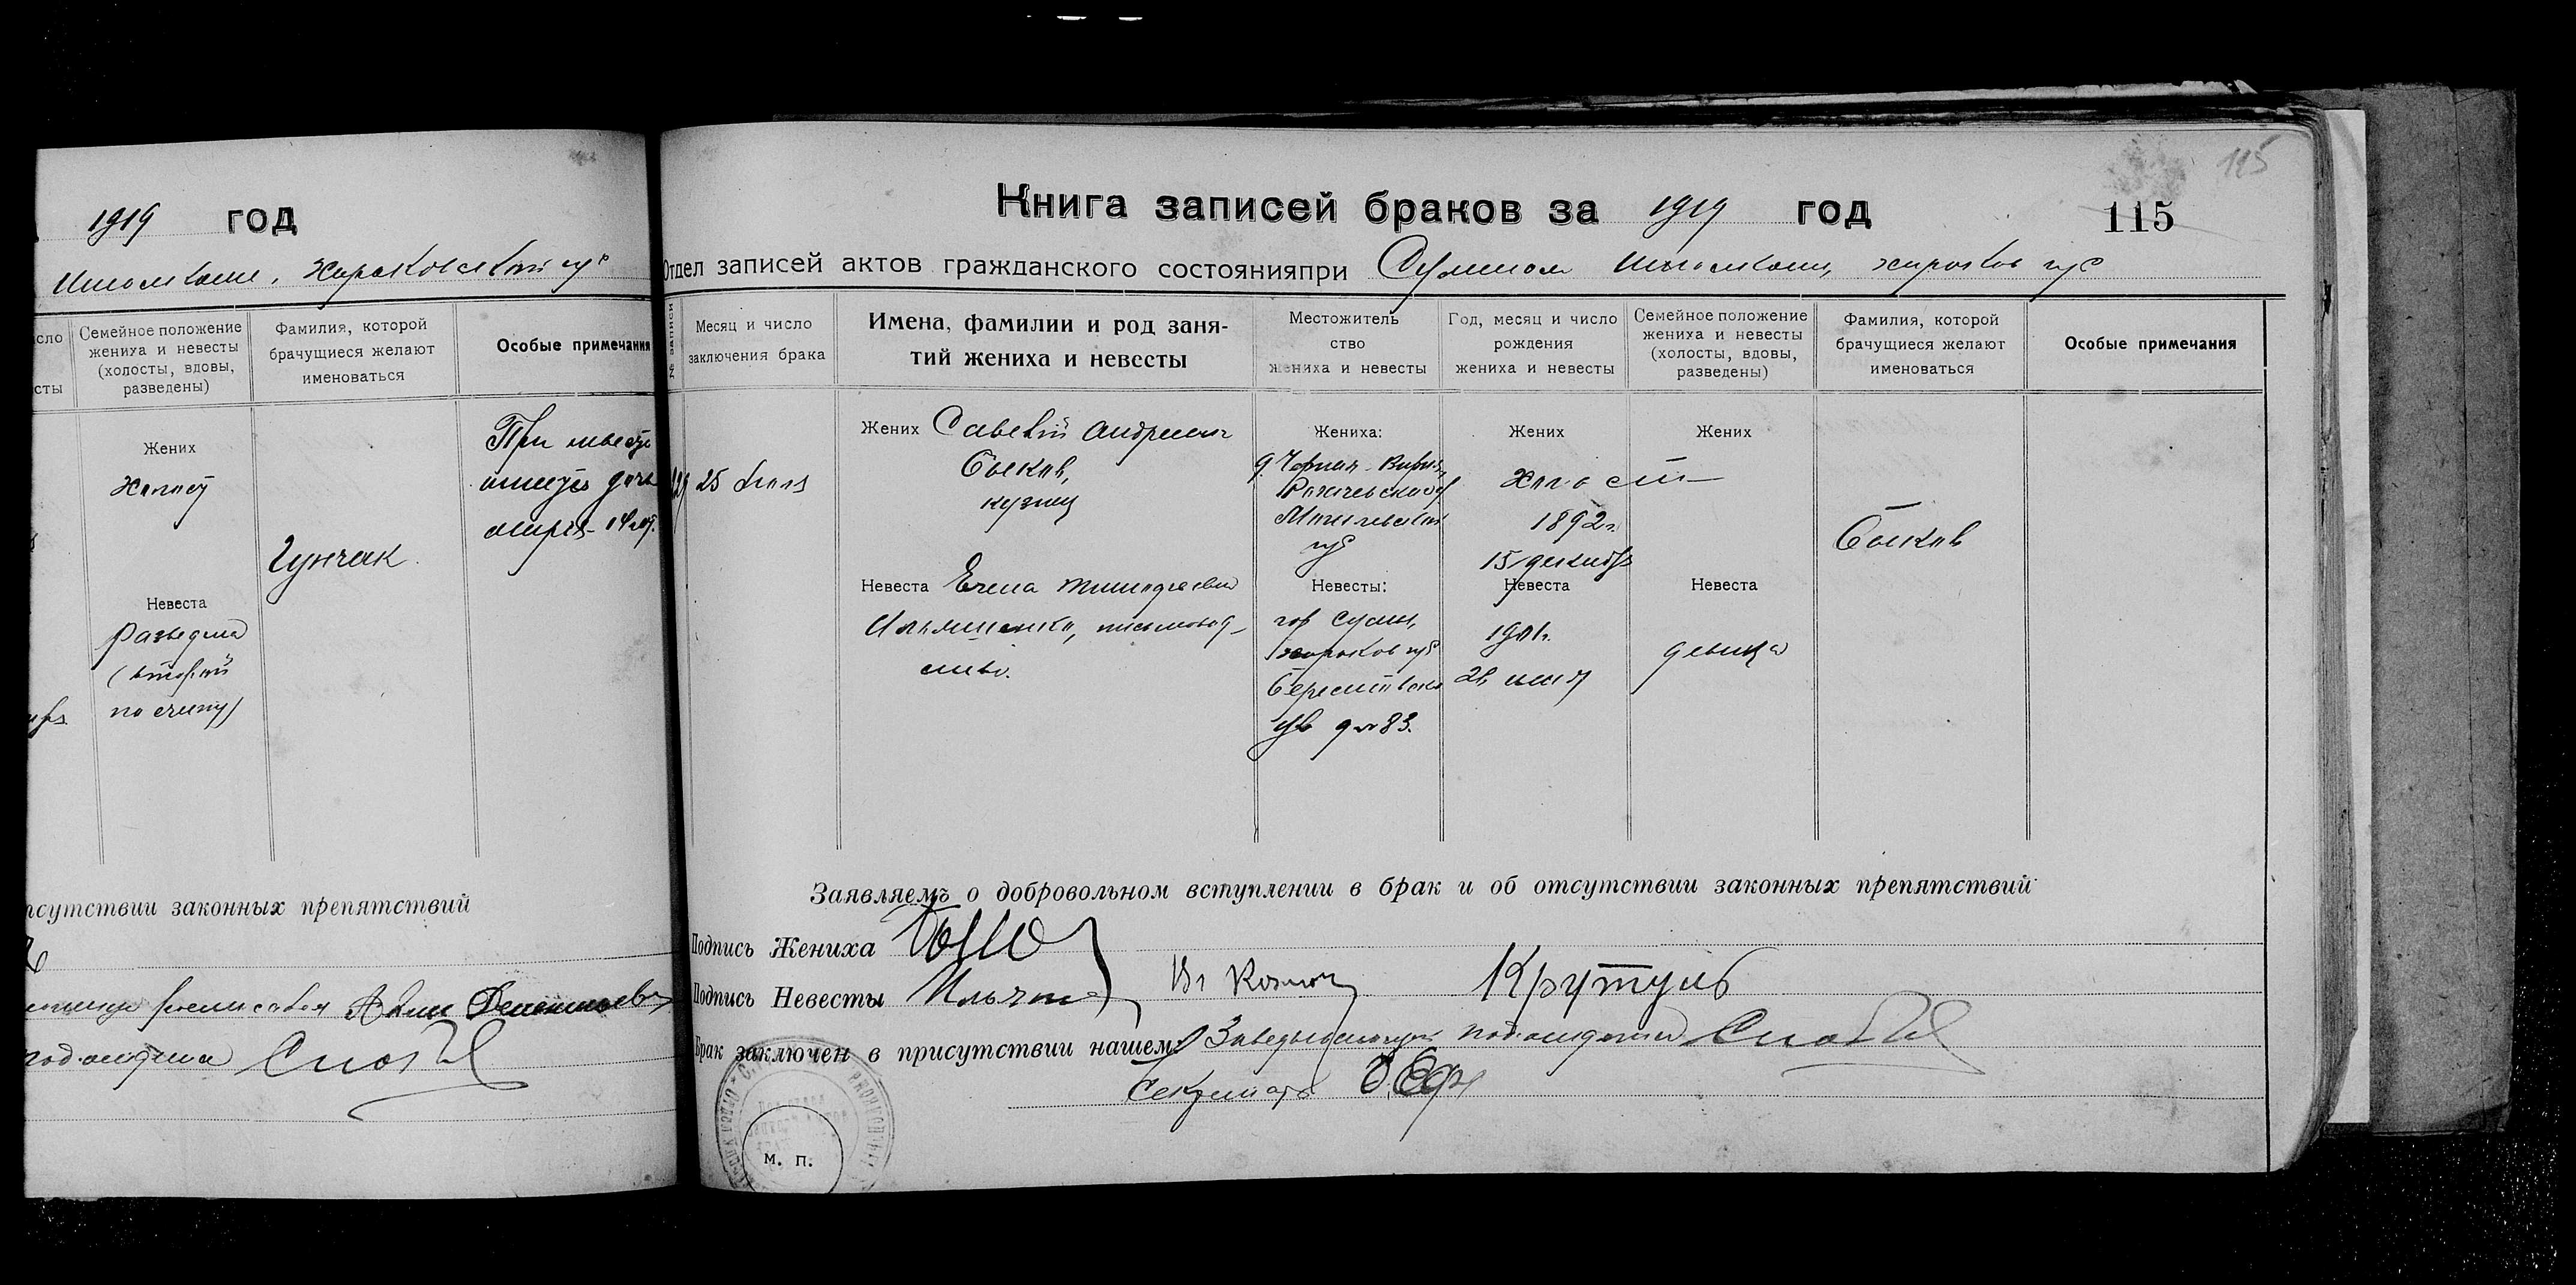 1919 год
Исполкоме, Харьковской губ
сло
сты
Семейное положение
жениха и невесты
(холосты, вдовы,
разведены)
Фамилия, которой
брачущиеся желают
именоваться
Особые примечания
Жених
Холост
Гунчак
При
дочь
Мария
Невеста
Разведена
(второй
по счету)
тсутствии законных препятствий
115
Книга записей браков за 1919 год
115
Отдел записей актов гражданского состоянияпри Сумском Исполкоме, харьков губ
№ записи
Месяц и число
заключения брака
Имена, фамилии и род заня-
тий жениха и невесты
Местожитель
ство
жениха и невесты
Год, месяц и число
рождения
жениха и невесты
Семейное положение
жениха и невесты
(холосты, вдовы,
разведены)
Фамилия, которой
брачущиеся желают
именоваться
Особые примечания
25 Июля
Жених Савелий Андреевич
Быков,
кузнец
Невеста Елена Тимофеевна
Ильяшенко, письмовод-
ство.
Жениха:
д. Черная Вирня
Рогачевского у
Могилевской
губ
Невесты:
гор Сумы,
харьков губ
Берестовская
ул д № 83.
Жених
холост
1892г.
15 декабря
Невеста
1901г.
21 мая
Жених
Невеста
девица
Быков
Заявляемъ о добровольном вступлении в брак и об отсутствии законных препятствий
Подпись Жениха
Подпись Невесты
Крутуль
Брак заключен в присутствии нашем: Заведывающий подотделом
Секретарь
м. п.